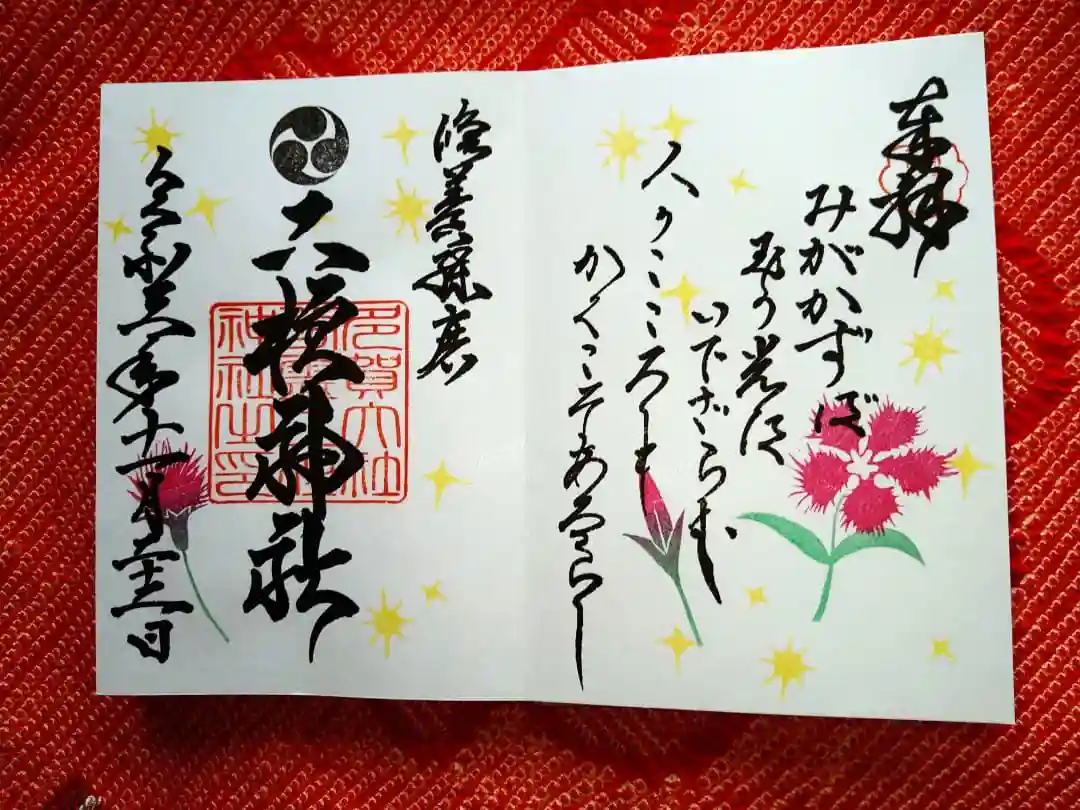 奉拝
みがかずば
玉の光は
いでざらむ
人のこころも
かくこそあるらし
神社
多賀大社
神社之印
令和三年十一月二十三日